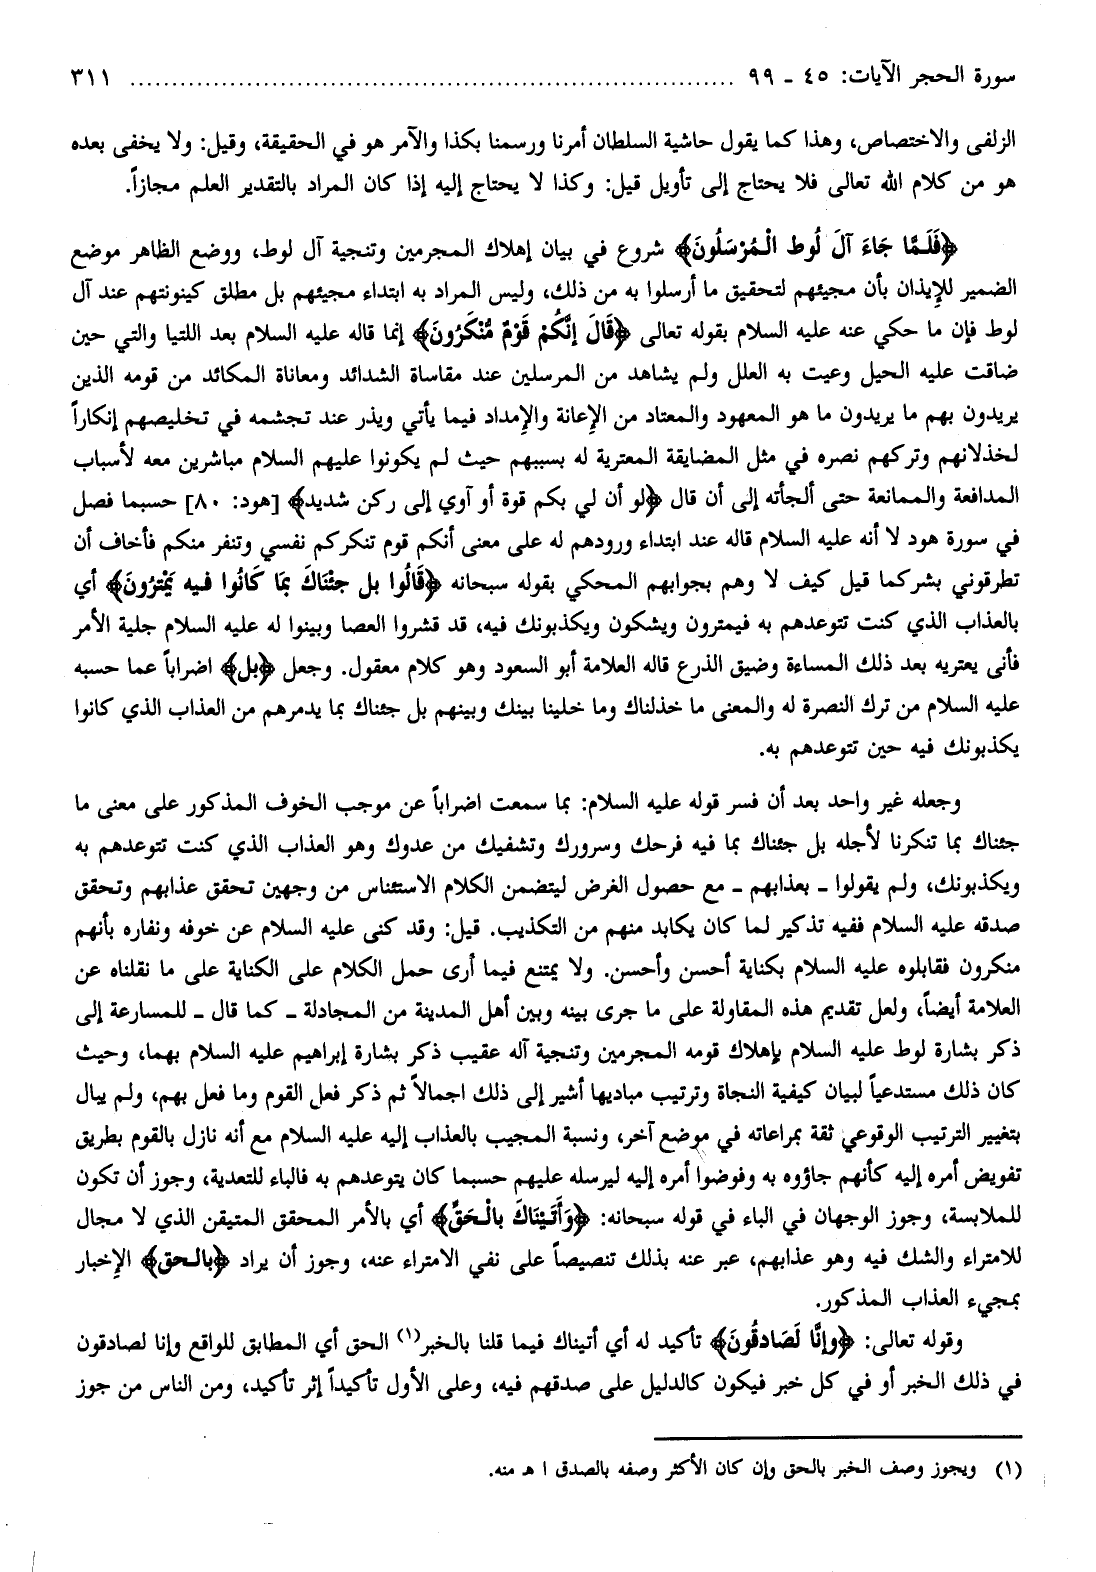 سورة الحجر الآيات: ٤٥ ـ ٩٩ ........................................................................ ٣١١
الزلفى والاختصاص، وهذا كما يقول حاشية السلطان أمرنا ورسمنا بكذا والآمر هو في الحقيقة، وقيل: ولا يخفى بعده
هو من كلام الله تعالى فلا يحتاج إلى تأويل قيل: وكذا لا يحتاج إليه إذا كان المراد بالتقدير العلم مجازاً.
﴿فَلَمَّا جَاءَ آلَ لُوط الْمُرْسَلُونَ﴾ شروع في بيان إهلاك المجرمين وتنجية آل لوط، ووضع الظاهر موضع
الضمير للإيذان بأن مجيئهم لتحقيق ما أرسلوا به من ذلك، وليس المراد به ابتداء مجيئهم بل مطلق كينونتهم عند آل
لوط فإن ما حكي عنه عليه السلام بقوله تعالى ﴿قَالَ إنَّكُمْ قَوْمٌ مُّنْكَرُونَ﴾ إنما قاله عليه السلام بعد اللتيا والتي حين
ضاقت عليه الحيل وعيت به العلل ولم يشاهد من المرسلين عند مقاساة الشدائد ومعاناة المكائد من قومه الذين
يريدون بهم ما يريدون ما هو المعهود والمعتاد من الإعانة والإمداد فيما يأتي ويذر عند تجشمه في تخليصهم إنكاراً
لخذلانهم وتركهم نصره في مثل المضايقة المعترية له بسببهم حيث لم يكونوا عليهم السلام مباشرين معه لأسباب
المدافعة والممانعة حتى ألجأته إلى أن قال ﴿لو أن لي بكم قوة أو آوي إلى ركن شديد﴾ [هود: ٨٠] حسبما فصل
في سورة هود لا أنه عليه السلام قاله عند ابتداء ورودهم له على معنى أنكم قوم تنكركم نفسي وتنفر منكم فأخاف أن
تطرقوني بشركما قيل كيف لا وهم بجوابهم المحكي بقوله سبحانه ﴿قَالُوا بل جئْنَاكَ بمَا كَانُوا فيه يَمْتَرُونَ﴾ أي
بالعذاب الذي كنت تتوعدهم به فيمترون ويشكون ويكذبونك فيه، قد قشروا العصا وبينوا له عليه السلام جلية الأمر
فأنى يعتريه بعد ذلك المساءة وضيق الذرع قاله العلامة أبو السعود وهو كلام معقول. وجعل ﴿بل﴾ اضراباً عما حسبه
عليه السلام من ترك النصرة له والمعنى ما خذلناك وما خلينا بينك وبينهم بل جئناك بما يدمرهم من العذاب الذي كانوا
يكذبونك فيه حين تتوعدهم به.
وجعله غير واحد بعد أن فسر قوله عليه السلام: بما سمعت اضراباً عن موجب الخوف المذكور على معنى ما
جئناك بما تنكرنا لأجله بل جئناك بما فيه فرحك وسرورك وتشفيك من عدوك وهو العذاب الذي كنت تتوعدهم به
ويكذبونك، ولم يقولوا ـ بعذابهم ـ مع حصول الغرض ليتضمن الكلام الاستئناس من وجهين تحقق عذابهم وتحقق
صدقه عليه السلام ففيه تذكير لما كان يكابد منهم من التكذيب. قيل: وقد كنى عليه السلام عن خوفه ونفاره بأنهم
منكرون فقابلوه عليه السلام بكناية أحسن وأحسن. ولا يمتنع فيما أرى حمل الكلام على الكناية على ما نقلناه عن
العلامة أيضاً، ولعل تقديم هذه المقاولة على ما جرى بينه وبين أهل المدينة من المجادلة ـ كما قال ـ للمسارعة إلى
ذكر بشارة لوط عليه السلام بإهلاك قومه المجرمين وتنجية آله عقيب ذكر بشارة إبراهيم عليه السلام بهما، وحيث
كان ذلك مستدعياً لبيان كيفية النجاة وترتيب مباديها أشير إلى ذلك اجمالاً ثم ذكر فعل القوم وما فعل بهم، ولم يبال
بتغيير الترتيب الوقوعي ثقة بمراعاته في موضع آخر، ونسبة المجيب بالعذاب إليه عليه السلام مع أنه نازل بالقوم بطريق
تفويض أمره إليه كأنهم جاؤوه به وفوضوا أمره إليه ليرسله عليهم حسبما كان يتوعدهم به فالباء للتعدية، وجوز أن تكون
للملابسة، وجوز الوجهان في الباء في قوله سبحانه: ﴿وَأَتَيْنَاكَ بالْحَقِّ﴾ أي بالأمر المحقق المتيقن الذي لا مجال
للامتراء والشك فيه وهو عذابهم، عبر عنه بذلك تنصيصاً على نفي الامتراء عنه، وجوز أن يراد ﴿بالحق﴾ الإخبار
بمجيء العذاب المذكور.
وقوله تعالى: ﴿وإنَّا لَصَادقُونَ﴾ تأكيد له أي أتيناك فيما قلنا بالخبر(١) الحق أي المطابق للواقع وإنا لصادقون
في ذلك الخبر أو في كل خبر فيكون كالدليل على صدقهم فيه، وعلى الأول تأكيداً إثر تأكيد، ومن الناس من جوز
(١) ويجوز وصف الخبر بالحق وإن كان الأكثر وصفه بالصدق ا هـ منه.